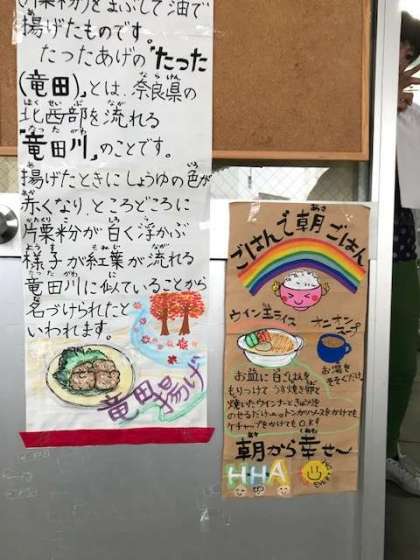 片栗粉)をまぶして油で
揚げたものです。
たつたあげの"たつた
(竜田)"とは、奈良県の
北西部を流れる
"竜田川"のことです。
揚げたときにしょうゆの色が
赤くなり、ところどころに
片栗粉が白く浮かぶ
様子が紅葉が流れる
竜田川に似ていることから
名づけられたと
いわれます。
竜田揚げ
ごはんで朝ごはん
ウイン玉ライス
オニオンスープ
お湯を
そそぐだけ
お皿に白ごはんを
もりつけてうす焼き卵で
焼いたウインナーときゅうりを
のせるだけ。
ケチャップをかけてもO.K!
朝から幸せ〜
H・H・A